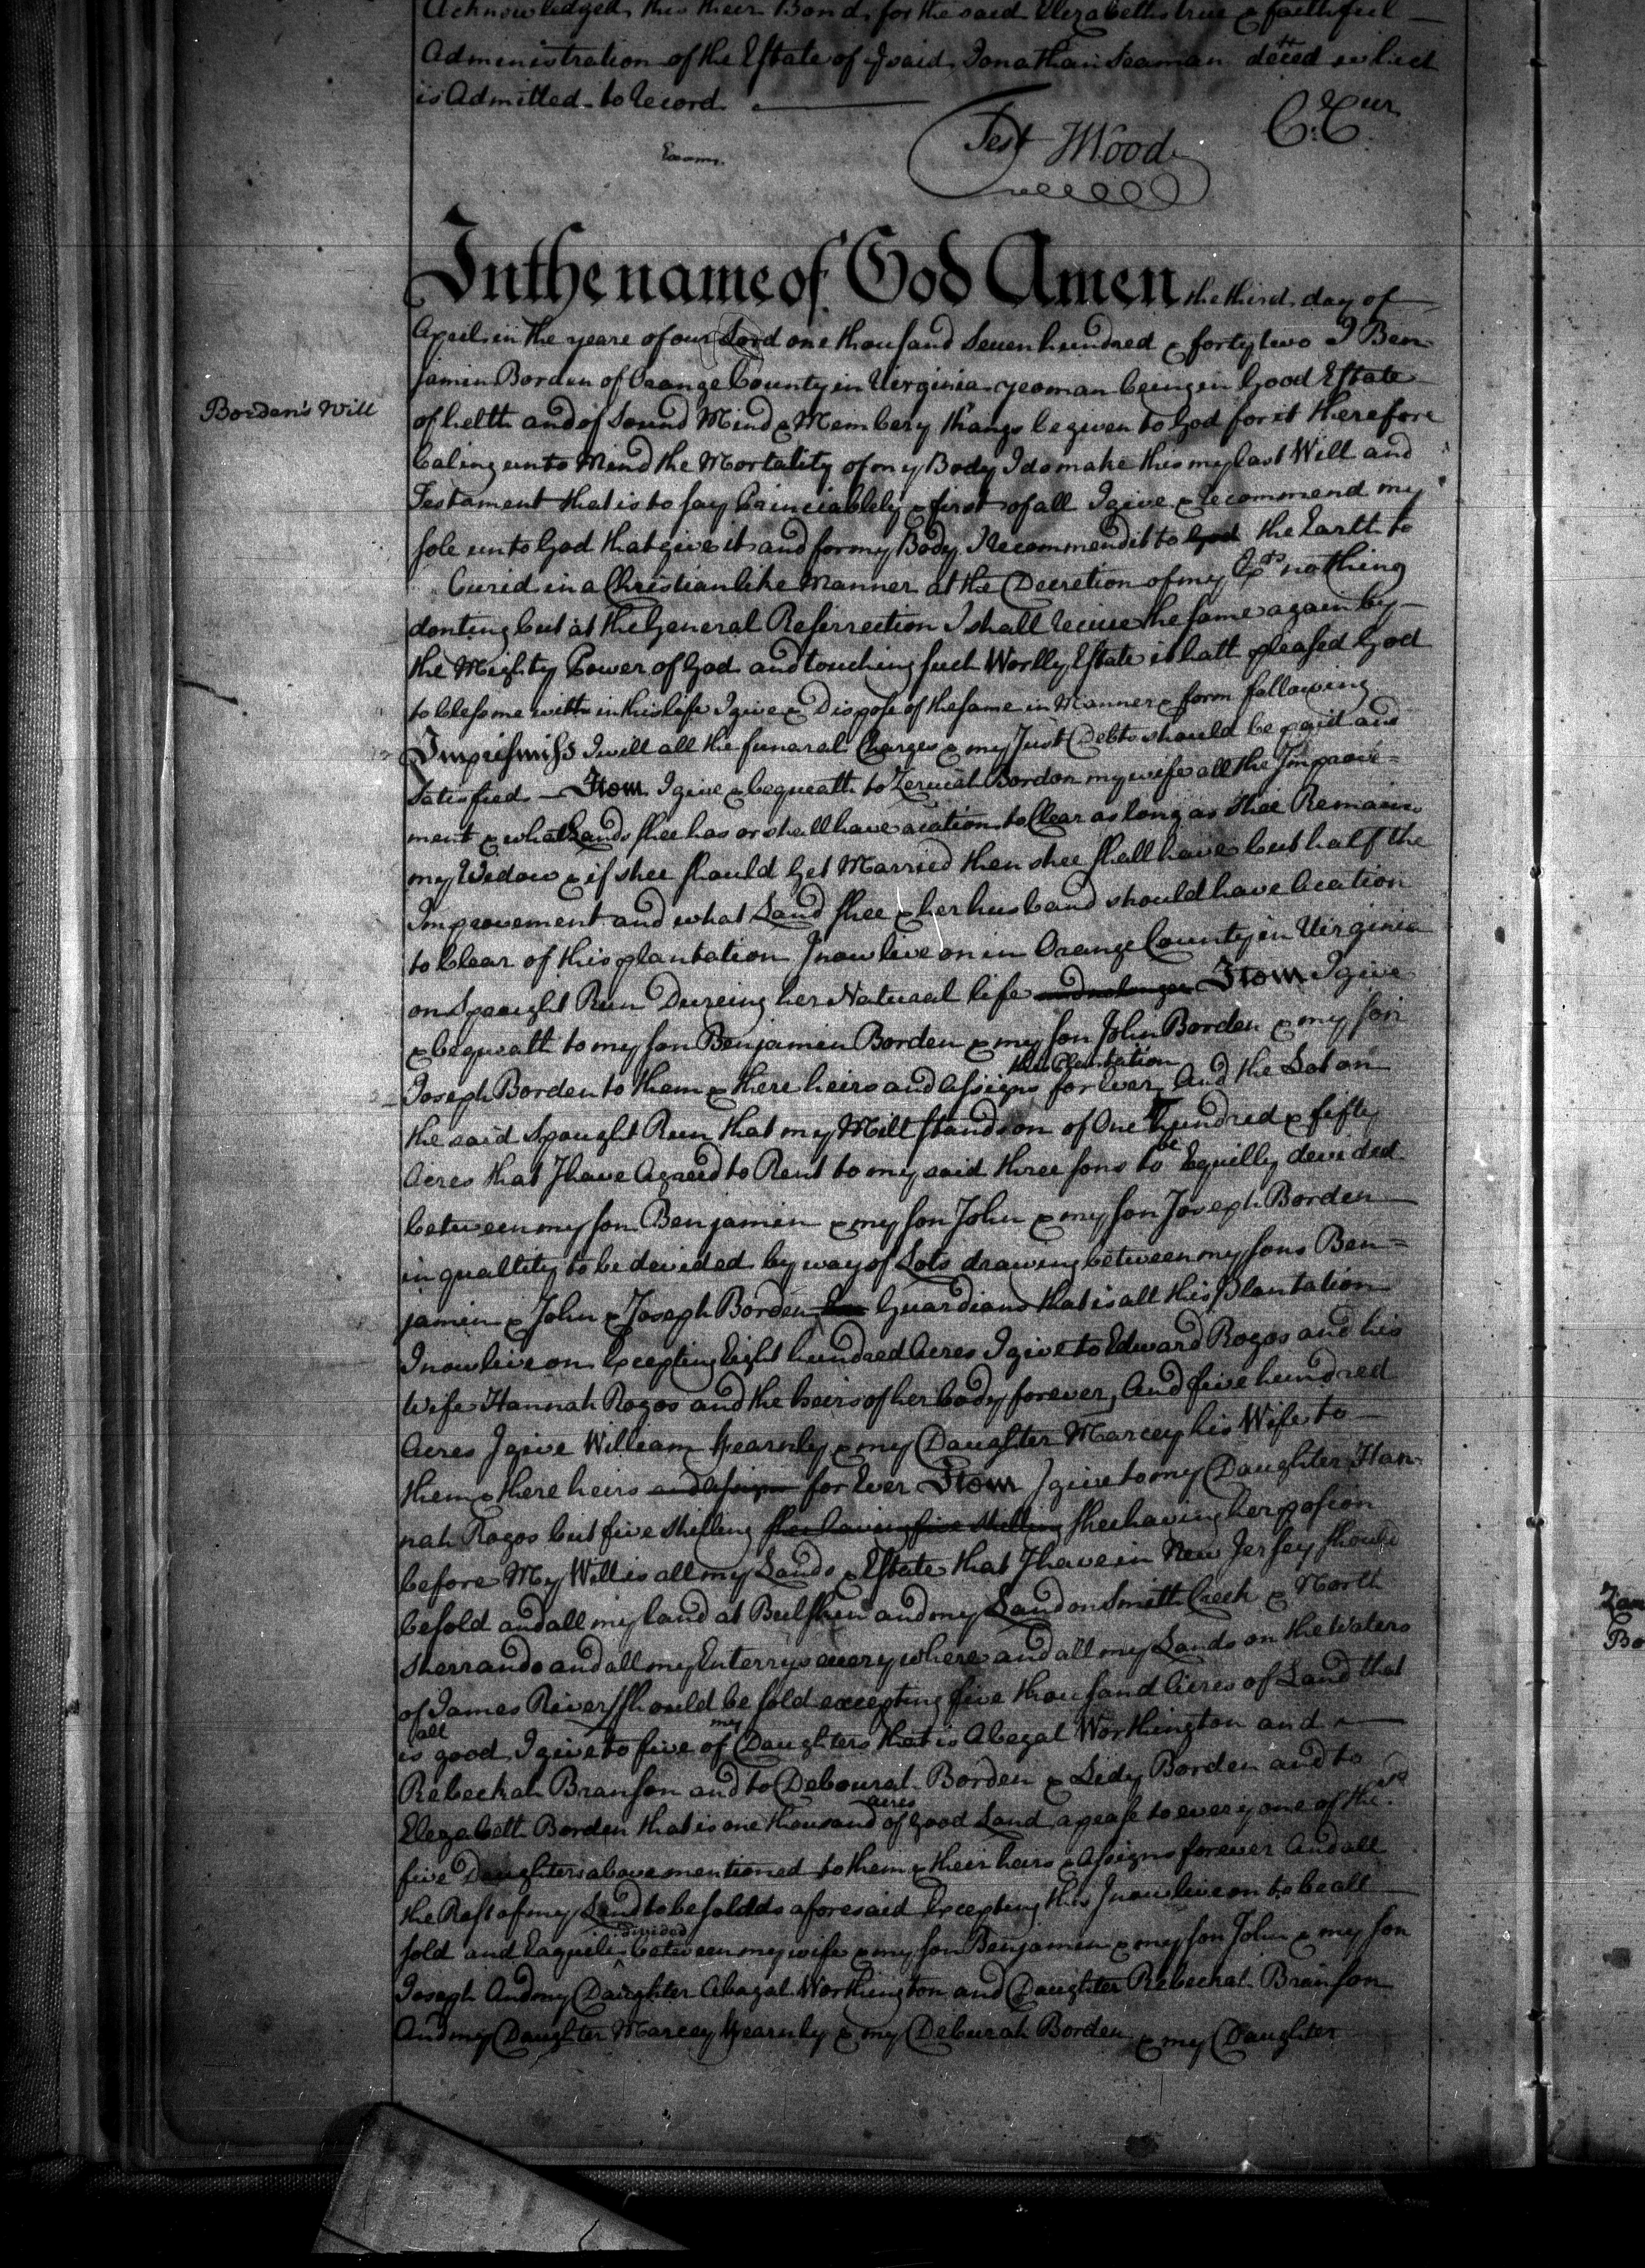 Acknowledged this their Bond for the said Elizabeths true & faithful
Administration of the Estate of ye said Jonathan Seaman deced which
is Admitted to Record
Exam.
Test J Wood C: Cur
In the name of God Amen the third day of
April in the yeare of our Lord one thousand Seven hundred & forty two I Ben-
jamin Borden of Orange County in Virginia yeoman being in Good Estate
Borden's Will
of helth and of Sound Mind & Membery thangs be given to God for it therefore
Caling unto Mind the Mortality of my Body I do make this my last Will and
Testament that is to say Princiablely & first of all I give & recommend my
sole unto God that give it and for my Body I recommend it to God the Earth to
Buried in a Christian like Manner at the Decretion of my Exrs nothing
donting but at the General Resurrection I shall receive the same again by
the Mighty Power of God and touching such Worlly Estate it hath pleased God
to bless me with in this life I give & Dispose of the same in Manner & form following
Imprismiss I will all the funeral Charges & my Just Debts should be paid and
Satisfied — Itom I give & bequeath to Zeruiah Borden my wife all the Improve=
ment & what Lands shee has or shall have acation to Clear as long as shee Remains
my Widow & if shee should Get Married then shee shall have but half the
Improvement and what Land shee & her husband should have acation
to Clear of this plantation I now live on in Orange County in Virginia
on Spaught Run Dureing her Natural life and no longer Itom I give
& bequeath to my son Benjamin Borden & my son John Borden & my son
this Plantation
Joseph Borden to them & there heirs and assigns for Ever And the Lot on
the said Spaught Run that my Mill stands on of One hundred & fifty
be
Acres that I have Agreed to Rent to my said three sons to Equilly devided
between my son Benjamin & my son John & my son Joseph Borden
in qualtity to be devided by way of Lots drawing between my sons Ben=
jamin & John & Joseph Borden Guardians that is all this Plantation
I now live on Excepting Eight hundred Acres I give to Edward Rogos and his
wife Hannah Rogos and the heirs of her body forever, And five hundred
Acres I give William Fearnly & my Daughter Marcey his Wife to
them & there heirs and assigns for Ever Itom I give to my Daughter Han-
nah Rogos but five shilling shee having five shilling shee having her posion
before My Will is all my Lands & Estate that I have in New Jersey should
be sold and all my land at Bulskin and my Land on Smith Creek & North
Sherrando and all my Enterrys every where and all my Lands on the Waters
of James River should be sold excepting five thousand Acres of Land that
all my
is good I give to five of Daughters that is Abegal Worthington and
Rebeckah Branson and to Debourah Borden & Lidy Borden and to
acres
Elezabeth Borden that is one thousand of good Land a pease to every one of the
five Daughters above mentioned to them & their heirs & Assigns forever And all
the Rest of my Land to be sold as aforesaid Excepting this I now live on to be all
divided
sold and Eaqueli between my wife & my son Benjamin & my son John & my son
Joseph And my Daughter Abagal Worthington and Daughter Rebeckah Branson
And my Daughter Marcey Fearnly & my Deburah Borden & my Daughter